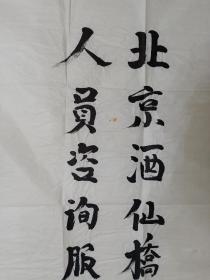 北京酒仙橋
人員咨询服